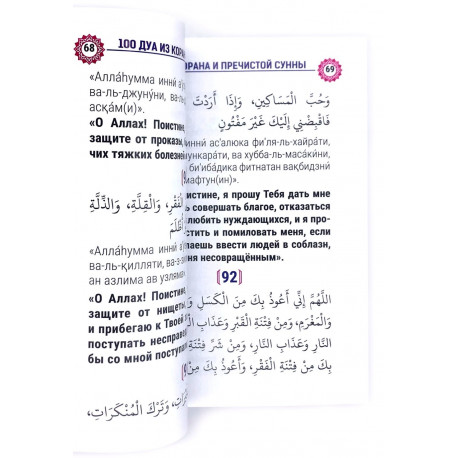 68
100 ДУА ИЗ КОРА
«Аллāhумма иннӣ а‘ӯ
ва-ль-джунӯни, ва-ль
асқāм(и)».
«О Аллах! Поистине,
защите от проказы,
чих тяжких болезней
الْفَقْرِ، وَالْقِلَّةِ، وَالذِّلَّةِ
أَظْلِمَ
«Аллāhумма иннӣ а‘ӯ
ва-ль-қилляти, ва-з-з
ан азлима ав узлям»
«О Аллах! Поистине
защите от нищеты
и прибегаю к Твоей
поступать несправе
бы со мной поступа
رَاتِ، وَتَرْكَ الْمُنْكَرَاتِ،
ОРАНА И ПРЕЧИСТОЙ СУННЫ
69
وَحُبَّ الْمَسَاكِينِ، وَإِذَا أَرَدْتَ
فَاقْبِضْنِي إِلَيْكَ غَيْرَ مَفْتُونٍ
иннӣ ас'алюка фи‘ля-ль-хайрāти,
ункарāти, ва хубба-ль-масāкӣни,
би‘ибāдика фитнатан вақбидзнӣ
мафтун(ин)».
истине, я прошу Тебя дать мне
ь совершать благое, отказаться
любить нуждающихся, и я про-
остить и помиловать меня, если
лаешь ввести людей в соблазн,
ня несовращённым».
(92)
اللَّهُمَّ إِنِّي أَعُوذُ بِكَ مِنَ الْكَسَلِ وَ
وَالْمَغْرَمِ، وَمِنْ فِتْنَةِ الْقَبْرِ وَعَذَابِ الْ
النَّارِ وَعَذَابِ النَّارِ، وَمِنْ شَرِّ فِتْنَةِ
بِكَ مِنْ فِتْنَةِ الْفَقْرِ، وَأَعُوذُ بِكَ مِنْ